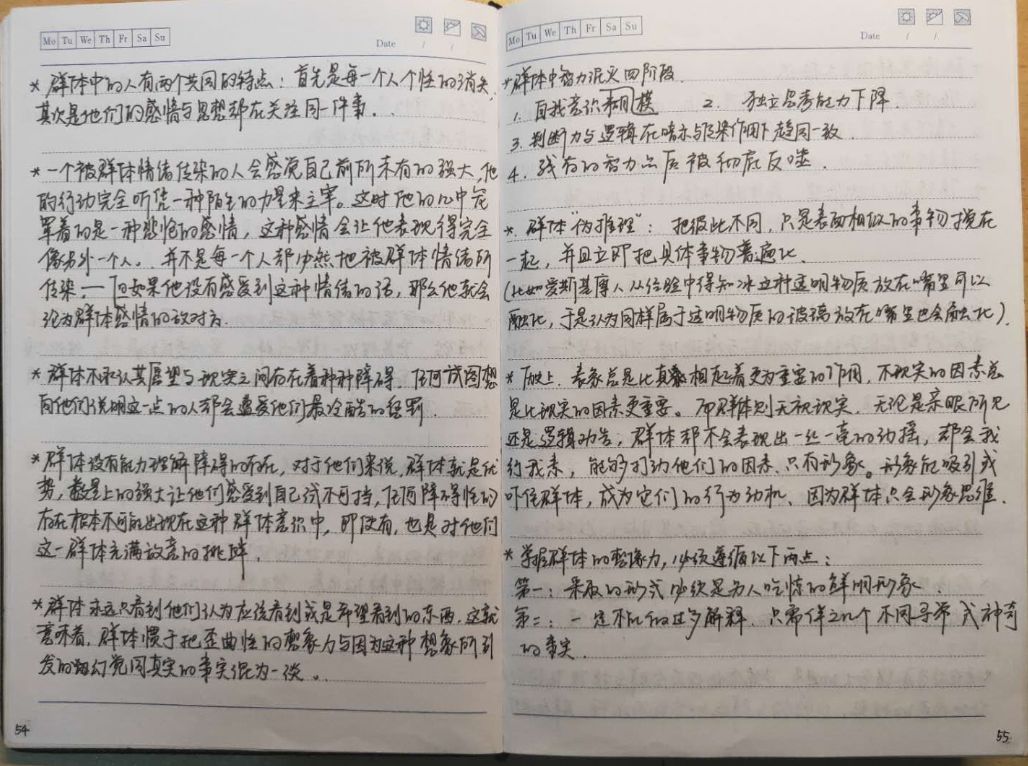 Mo Tu We Th Fr Sa Su
Date / /
* 群体中的人有两个共同的特点：首先是每一个人个性的消失，
其次是他们的感情与思想都在关注同一件事．
* 一个被群体情绪传染的人会感觉自己前所未有的强大，他
的行动完全听凭一种陌生的力量来主宰。这时他的心中笼
罩着的是一种悲怆的感情，这种感情会让他表现得完全
像另外一个人。并不是每一个人都必然地被群体情绪所
传染．— 但如果他没有感受到这种情绪的话，那么他就会
沦为群体感情的敌对方．
* 群体不承认其愿望与现实之间存在着种种障碍．任何试图想
向他们说明这一点的人都会遭受他们最冷酷的惩罚．
* 群体没有能力理解障碍的存在，对于他们来说，群体就是优
势，数量上的强大让他们感受到自己势不可挡，任何障碍性的
存在根本不可能出现在这种群体意识中，即使有，也是对他们
这一群体充满敌意的挑衅．
* 群体永远只看到他们认为应该看到或是希望看到的东西．这就
意味着，群体惯于把歪曲性的想象力与因为这种想象所引
发的幻觉同真实的事实混为一谈。
54
Mo Tu We Th Fr Sa Su
Date / /
* 群体中智力泯灭四阶段
1. 自我意识 2. 独立思考能力下降
3. 判断力与逻辑在暗示与传染作用下趋同一致
4. 残存的智力最后被彻底反噬．
* 群体“伪推理”：把彼此不同，只是表面相似的事物搅在
一起，并且立即把具体事物普遍化．
(比如爱斯基摩人从经验中得知冰这种透明物质放在嘴里可以
融化，于是认为同样属于透明物质的玻璃放在嘴里也会融化)．
* 历史上，表象总是比真象起着更为重要的作用，不现实的因素总
是比现实的因素更重要。而群体则无视现实，无论是亲眼所见
还是逻辑劝告，群体都不会表现出一丝一毫的动摇，都会我
行我素，能够打动他们的因素．只有形象。形象能吸引或
吓住群体，成为它们的行为动机．因为群体只会形象思维．
* 掌握群体的想象力，必须遵循以下两点：
第一：采取的形式必须是为人吃惊的鲜明形象
第二：一定不能做过多解释．只需伴之几个不同寻常或神奇
的事实
55